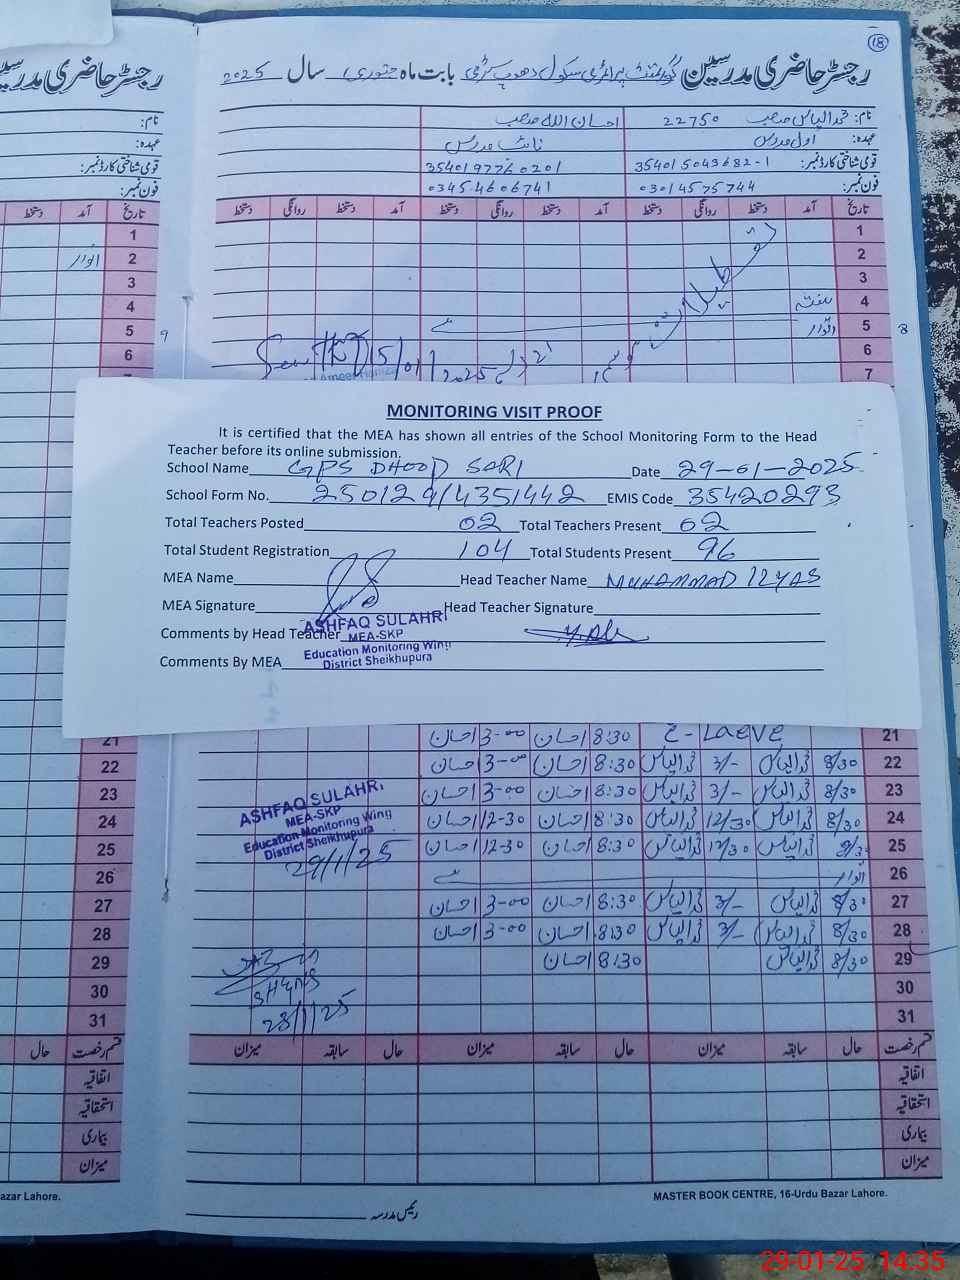 18
رجسٹر حاضری مدرسین گورنمنٹ پرائمری سکول دھوپ سڑی بابت ماہ جنوری سال 2025
رجسٹر حاضری مدرسین
نام: محمد الیاس صاحب 22750 احسان اللہ صاحب
عہدہ: اول مدرس نائب مدرس
قومی شناختی کارڈ نمبر: 35401 5043682-1 35401 9776020 1
فون نمبر: 0301 4575744 0345 4606741
نام:
عہدہ:
قومی شناختی کارڈ نمبر:
فون نمبر:
تاریخ آمد دستخط روانگی دستخط آمد دستخط روانگی دستخط آمد دستخط روانگی دستخط
تاریخ آمد دستخط
1
2
3
4 ہفتہ
5 اتوار
6
7
تعطیلات
8
1
2 اتوار
3
4
5
6
9
15/01/2025
MONITORING VISIT PROOF
It is certified that the MEA has shown all entries of the School Monitoring Form to the Head
Teacher before its online submission.
School Name GPS DHOOP SARI Date 29-01-2025
School Form No. 250129/4351442 EMIS Code 35420293
Total Teachers Posted 02 Total Teachers Present 02
Total Student Registration 104 Total Students Present 96
MEA Name Head Teacher Name MUHAMMAD ILYAS
MEA Signature Head Teacher Signature
Comments by Head Teacher
Comments By MEA
ASHFAQ SULAHRI
MEA-SKP
Education Monitoring Wing
District Sheikhupura
21 E-Laeve 8:30 احسان 3-00 احسان
22 8/30 محمد الیاس 3/- محمد الیاس 8:30 احسان 3-00 احسان
23 8/30 محمد الیاس 3/- محمد الیاس 8:30 احسان 3-00 احسان
24 8/30 محمد الیاس 12/30 محمد الیاس 8:30 احسان 12-30 احسان
25 8/30 محمد الیاس 12/30 محمد الیاس 8:30 احسان 12-30 احسان
26 اتوار
27 8/30 محمد الیاس 3/- محمد الیاس 8:30 احسان 3-00 احسان
28 8/30 محمد الیاس 3/- محمد الیاس 8:30 احسان 3-00 احسان
29 8/30 محمد الیاس 8:30 احسان
30
31
ASHFAQ SULAHRI
MEA-SKP
Education Monitoring Wing
District Sheikhupura
29/1/25
28/1/25
21
22
23
24
25
26
27
28
29
30
31
قسم رخصت حال سابقہ میزان حال سابقہ میزان حال سابقہ میزان
اتفاقیہ
استحقاقیہ
بیماری
میزان
قسم رخصت حال
اتفاقیہ
استحقاقیہ
بیماری
میزان
MASTER BOOK CENTRE, 16-Urdu Bazar Lahore.
azar Lahore.
رئیس مدرسہ
29-01-25 14:35